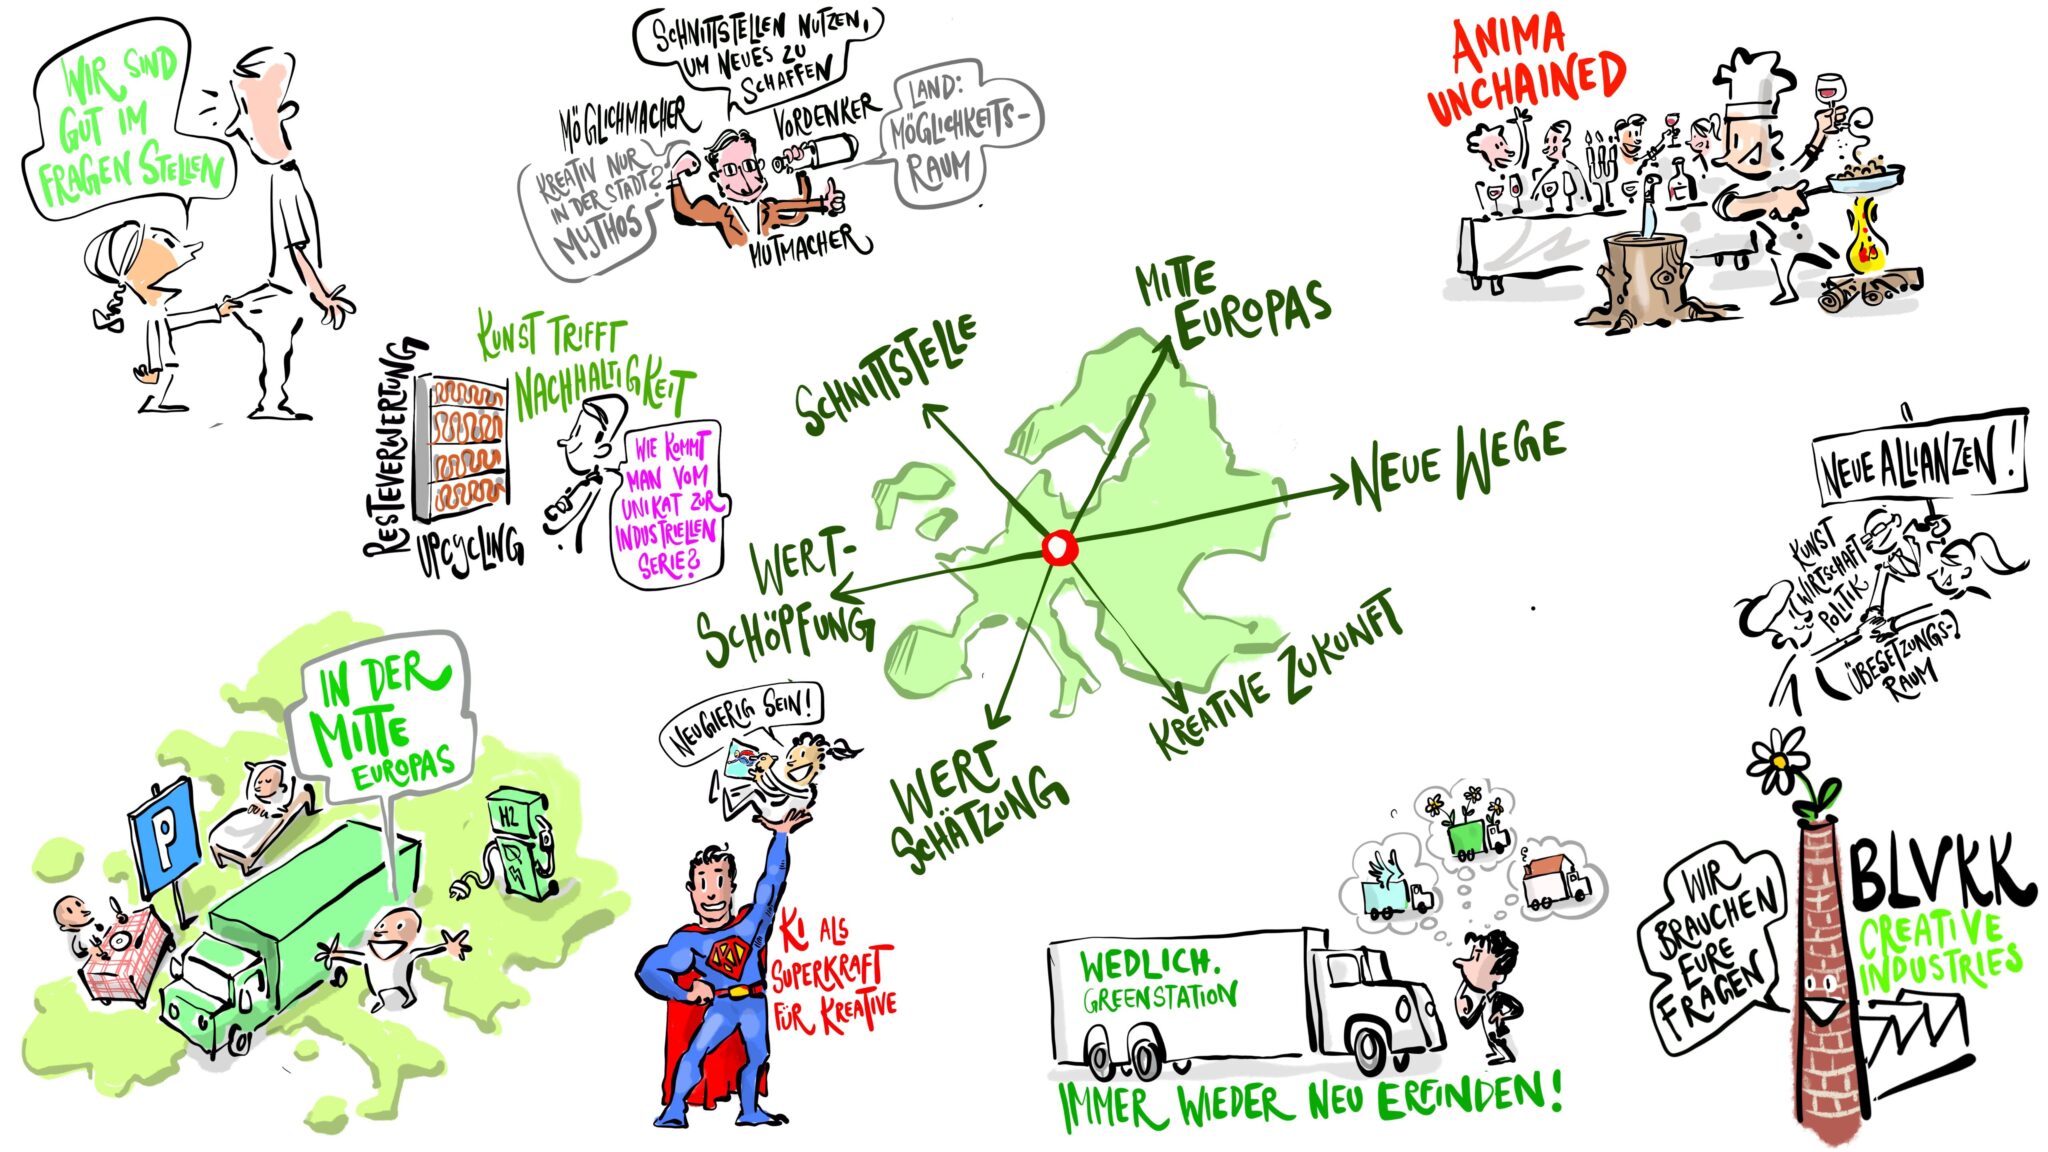 WIR SIND
GUT IM
FRAGEN STELLEN
SCHNITTSTELLEN NUTZEN,
UM NEUES ZU
SCHAFFEN
MÖGLICHMACHER
VORDENKER
MUTMACHER
KREATIV NUR
IN DER STADT?
MYTHOS
LAND:
MÖGLICHKEITS-
RAUM
ANIMA
UNCHAINED
KUNST TRIFFT
NACHHALTIGKEIT
RESTEVERWERTUNG
UPCYCLING
WIE KOMMT
MAN VOM
UNIKAT ZUR
INDUSTRIELLEN
SERIE?
SCHNITTSTELLE
MITTE
EUROPAS
NEUE WEGE
KREATIVE ZUKUNFT
WERT
SCHÄTZUNG
WERT-
SCHÖPFUNG
NEUE ALLIANZEN!
KUNST
WIRTSCHAFT
POLITIK
ÜBESETZUNGS-
RAUM
IN DER
MITTE
EUROPAS
P
H2
NEUGIERIG SEIN!
KI
KI ALS
SUPERKRAFT
FÜR KREATIVE
WEDLICH.
GREENSTATION
IMMER WIEDER NEU ERFINDEN!
WIR
BRAUCHEN
EURE
FRAGEN
BLVKK
CREATIVE
INDUSTRIES